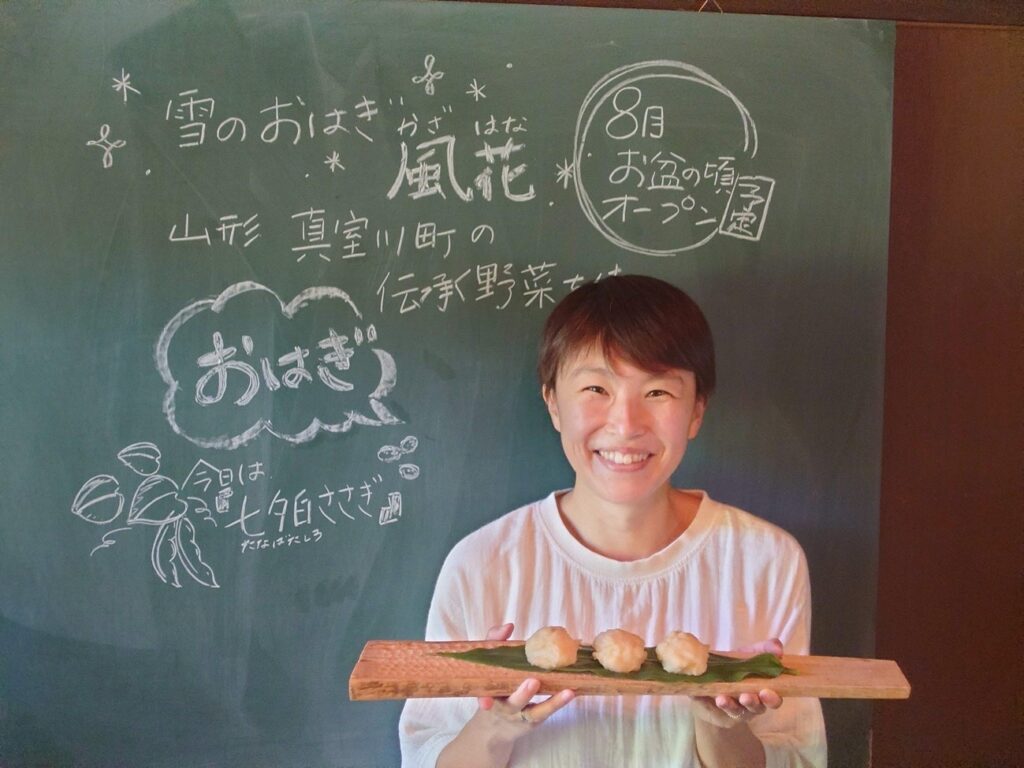 雪のおはぎ
かざ はな
風花
山形 真室川町の
伝承野菜
おはぎ
今日は
七夕白ささぎ
たなばたしろ
8月
お盆の頃
オープン
予定